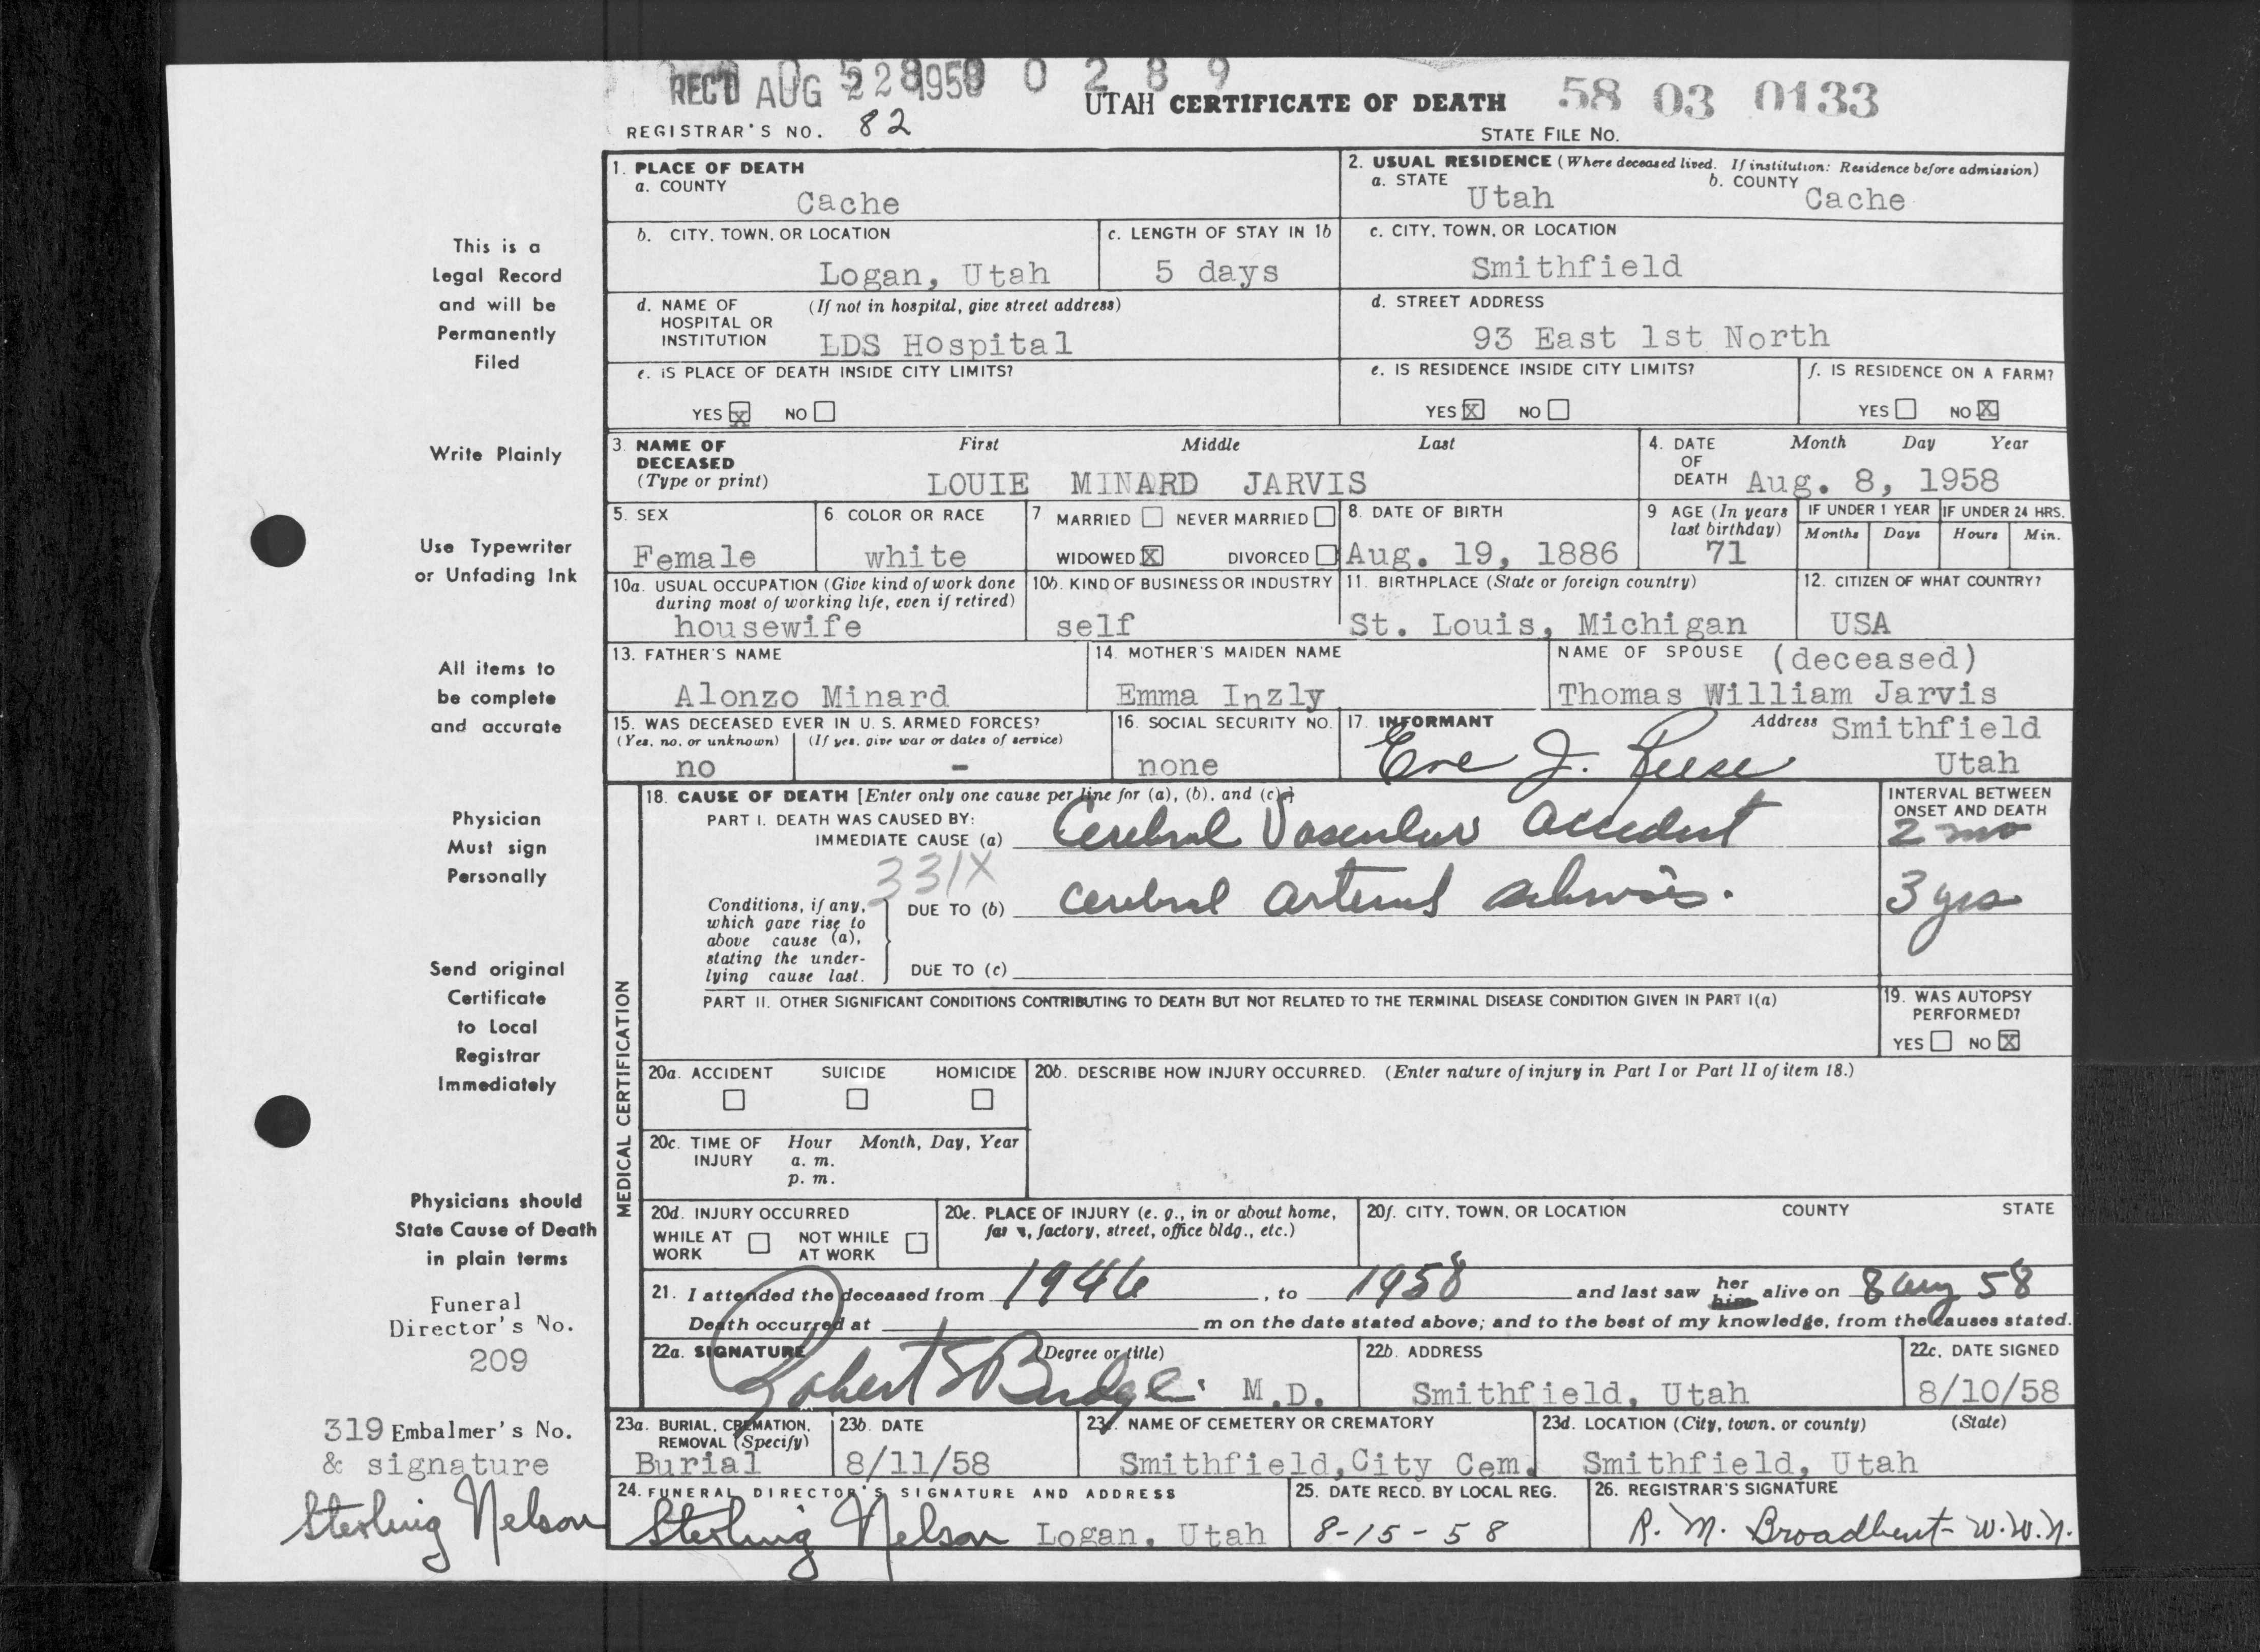 REC'D AUG 22 1958 0 2 8 9
UTAH CERTIFICATE OF DEATH 58 03 0133
REGISTRAR'S NO. 82
STATE FILE NO.
1. PLACE OF DEATH
a. COUNTY
Cache
2. USUAL RESIDENCE (Where deceased lived. If institution: Residence before admission)
a. STATE b. COUNTY
Utah Cache
b. CITY, TOWN, OR LOCATION
Logan, Utah
c. LENGTH OF STAY IN 1b
5 days
c. CITY, TOWN, OR LOCATION
Smithfield
d. NAME OF (If not in hospital, give street address)
HOSPITAL OR
INSTITUTION LDS Hospital
d. STREET ADDRESS
93 East 1st North
e. IS PLACE OF DEATH INSIDE CITY LIMITS?
YES X NO
e. IS RESIDENCE INSIDE CITY LIMITS?
YES X NO
f. IS RESIDENCE ON A FARM?
YES NO X
3. NAME OF First Middle Last
DECEASED
(Type or print) LOUIE MINARD JARVIS
4. DATE Month Day Year
OF
DEATH Aug. 8, 1958
5. SEX
Female
6. COLOR OR RACE
white
7 MARRIED NEVER MARRIED
WIDOWED X DIVORCED
8. DATE OF BIRTH
Aug. 19, 1886
9 AGE (In years
last birthday)
71
IF UNDER 1 YEAR
Months Days
IF UNDER 24 HRS.
Hours Min.
10a. USUAL OCCUPATION (Give kind of work done
during most of working life, even if retired)
housewife
10b. KIND OF BUSINESS OR INDUSTRY
self
11. BIRTHPLACE (State or foreign country)
St. Louis, Michigan
12. CITIZEN OF WHAT COUNTRY?
USA
13. FATHER'S NAME
Alonzo Minard
14. MOTHER'S MAIDEN NAME
Emma Inzly
NAME OF SPOUSE (deceased)
Thomas William Jarvis
15. WAS DECEASED EVER IN U. S. ARMED FORCES?
(Yes, no, or unknown) (If yes, give war or dates of service)
no -
16. SOCIAL SECURITY NO.
none
17. INFORMANT Address Smithfield
Eve J. Reese Utah
MEDICAL CERTIFICATION
18. CAUSE OF DEATH [Enter only one cause per line for (a), (b), and (c)]
PART I. DEATH WAS CAUSED BY:
IMMEDIATE CAUSE (a) Cerebral Vascular accident
INTERVAL BETWEEN
ONSET AND DEATH
2 mo
331X
Conditions, if any,
which gave rise to
above cause (a),
stating the under-
lying cause last.
DUE TO (b) cerebral arterial sclerosis.
3 yrs
DUE TO (c)
PART II. OTHER SIGNIFICANT CONDITIONS CONTRIBUTING TO DEATH BUT NOT RELATED TO THE TERMINAL DISEASE CONDITION GIVEN IN PART I(a)
19. WAS AUTOPSY
PERFORMED?
YES NO X
20a. ACCIDENT SUICIDE HOMICIDE
20b. DESCRIBE HOW INJURY OCCURRED. (Enter nature of injury in Part I or Part II of item 18.)
20c. TIME OF Hour Month, Day, Year
INJURY a. m.
p. m.
20d. INJURY OCCURRED
WHILE AT NOT WHILE
WORK AT WORK
20e. PLACE OF INJURY (e. g., in or about home,
farm, factory, street, office bldg., etc.)
20f. CITY, TOWN, OR LOCATION COUNTY STATE
21. I attended the deceased from 1946, to 1958 and last saw her him alive on 8 Aug 58
Death occurred at m on the date stated above; and to the best of my knowledge, from the causes stated.
22a. SIGNATURE (Degree or title)
Robert S Budge M.D.
22b. ADDRESS
Smithfield, Utah
22c. DATE SIGNED
8/10/58
23a. BURIAL, CREMATION,
REMOVAL (Specify)
Burial
23b. DATE
8/11/58
23c. NAME OF CEMETERY OR CREMATORY
Smithfield,City Cem.
23d. LOCATION (City, town, or county) (State)
Smithfield, Utah
24. FUNERAL DIRECTOR'S SIGNATURE AND ADDRESS
Sterling Nelson Logan, Utah
25. DATE RECD. BY LOCAL REG.
8-15-58
26. REGISTRAR'S SIGNATURE
R. M. Broadbent- W.W.N.
This is a
Legal Record
and will be
Permanently
Filed
Write Plainly
Use Typewriter
or Unfading Ink
All items to
be complete
and accurate
Physician
Must sign
Personally
Send original
Certificate
to Local
Registrar
Immediately
Physicians should
State Cause of Death
in plain terms
Funeral
Director's No.
209
319 Embalmer's No.
& signature
Sterling Nelson